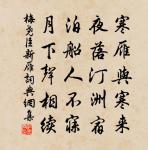 寒雁與寒來
夜落汀洲宿
泊船人不寐
月下聲相續
梅堯臣新雁詞典網集